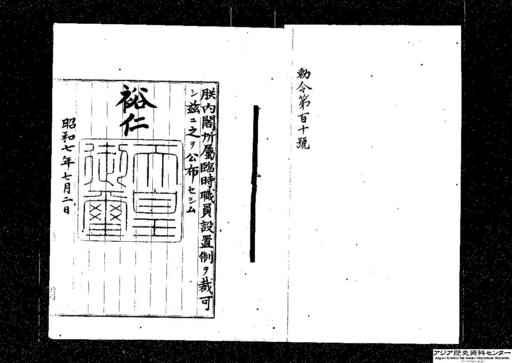 勅令第百十號
朕内閣所屬臨時職員設置制ヲ裁可
シ玆ニ之ヲ公布セシム
裕仁
天皇御璽
昭和七年七月二日
アジア歴史資料センター
Japan Center for Asian Historical Records